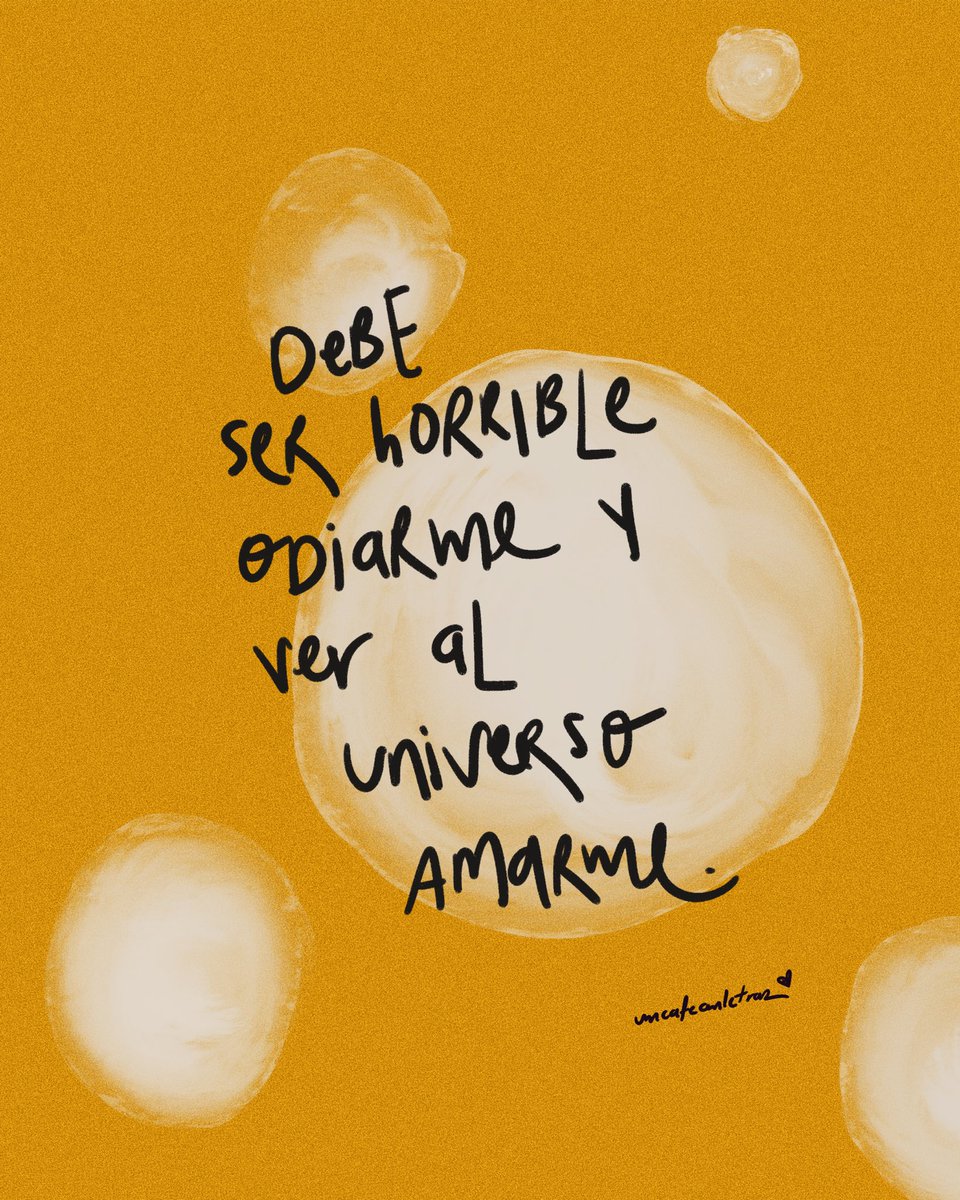 DeBE
ser hORRIBLe
ODiaRme Y
ver aL
universo
Amarme.
uncafeconletras